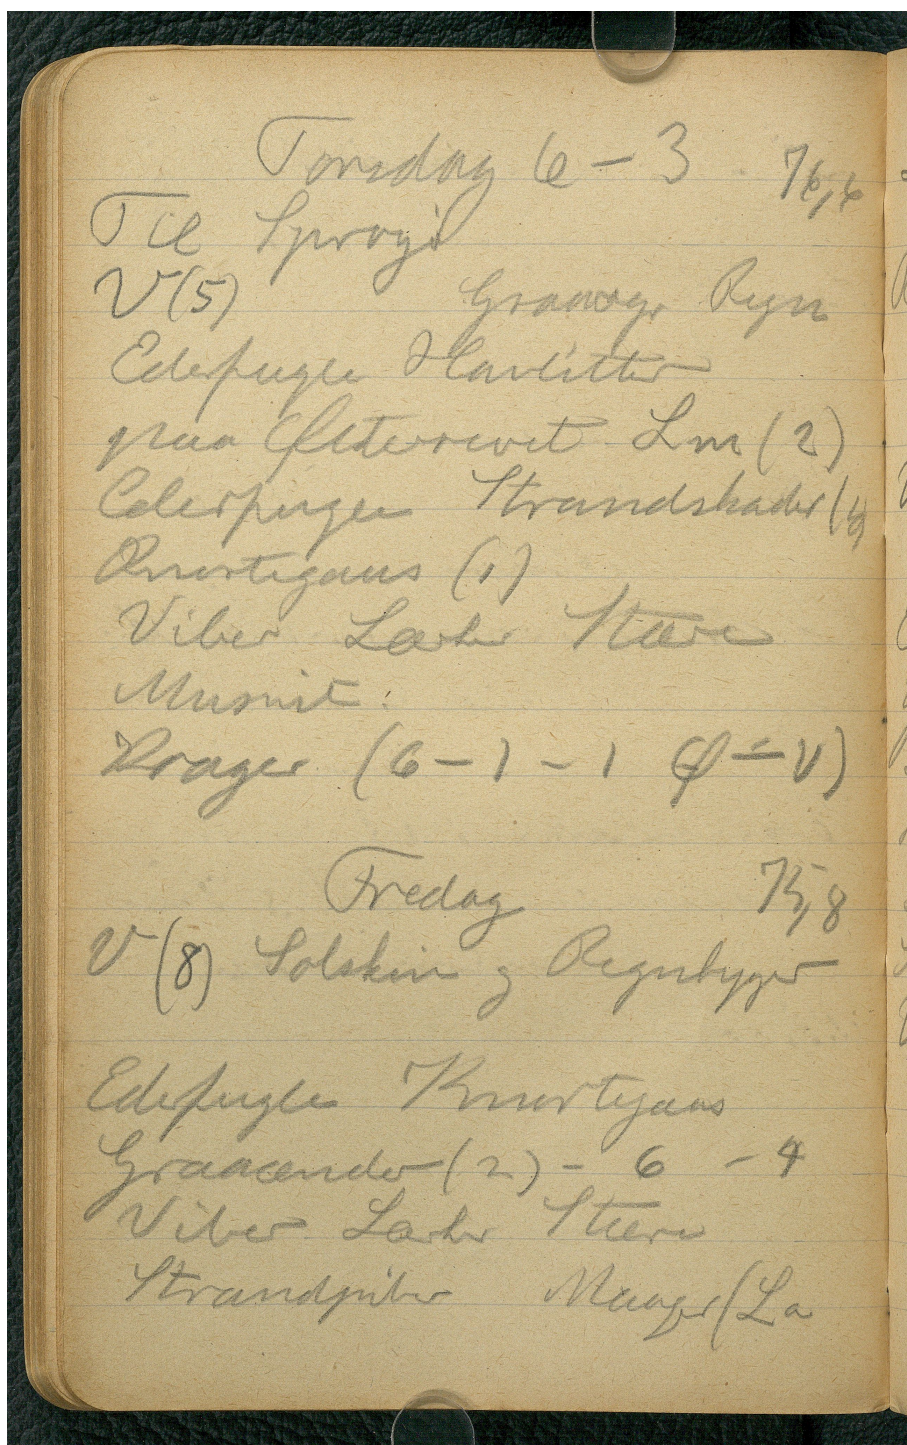 Torsdag 6 - 3 76,6
Til Sprogø
V (5) Graavejr, Regn
Ederfugle Havlitter
paa Østerrevet Lm (2)
Ederfugle Strandskader (4)
Knortegaas (1)
Viber Lærker Stære
Musvit.
Krager (6 - 1 - 1 Ø - V)
Fredag 75,8
V (8) Solskin og Regnbyger
Edefugle Knortegaas
Graaænder (2) - 6 - 4
Viber Lærker Stære
Strandpiber Maager (La